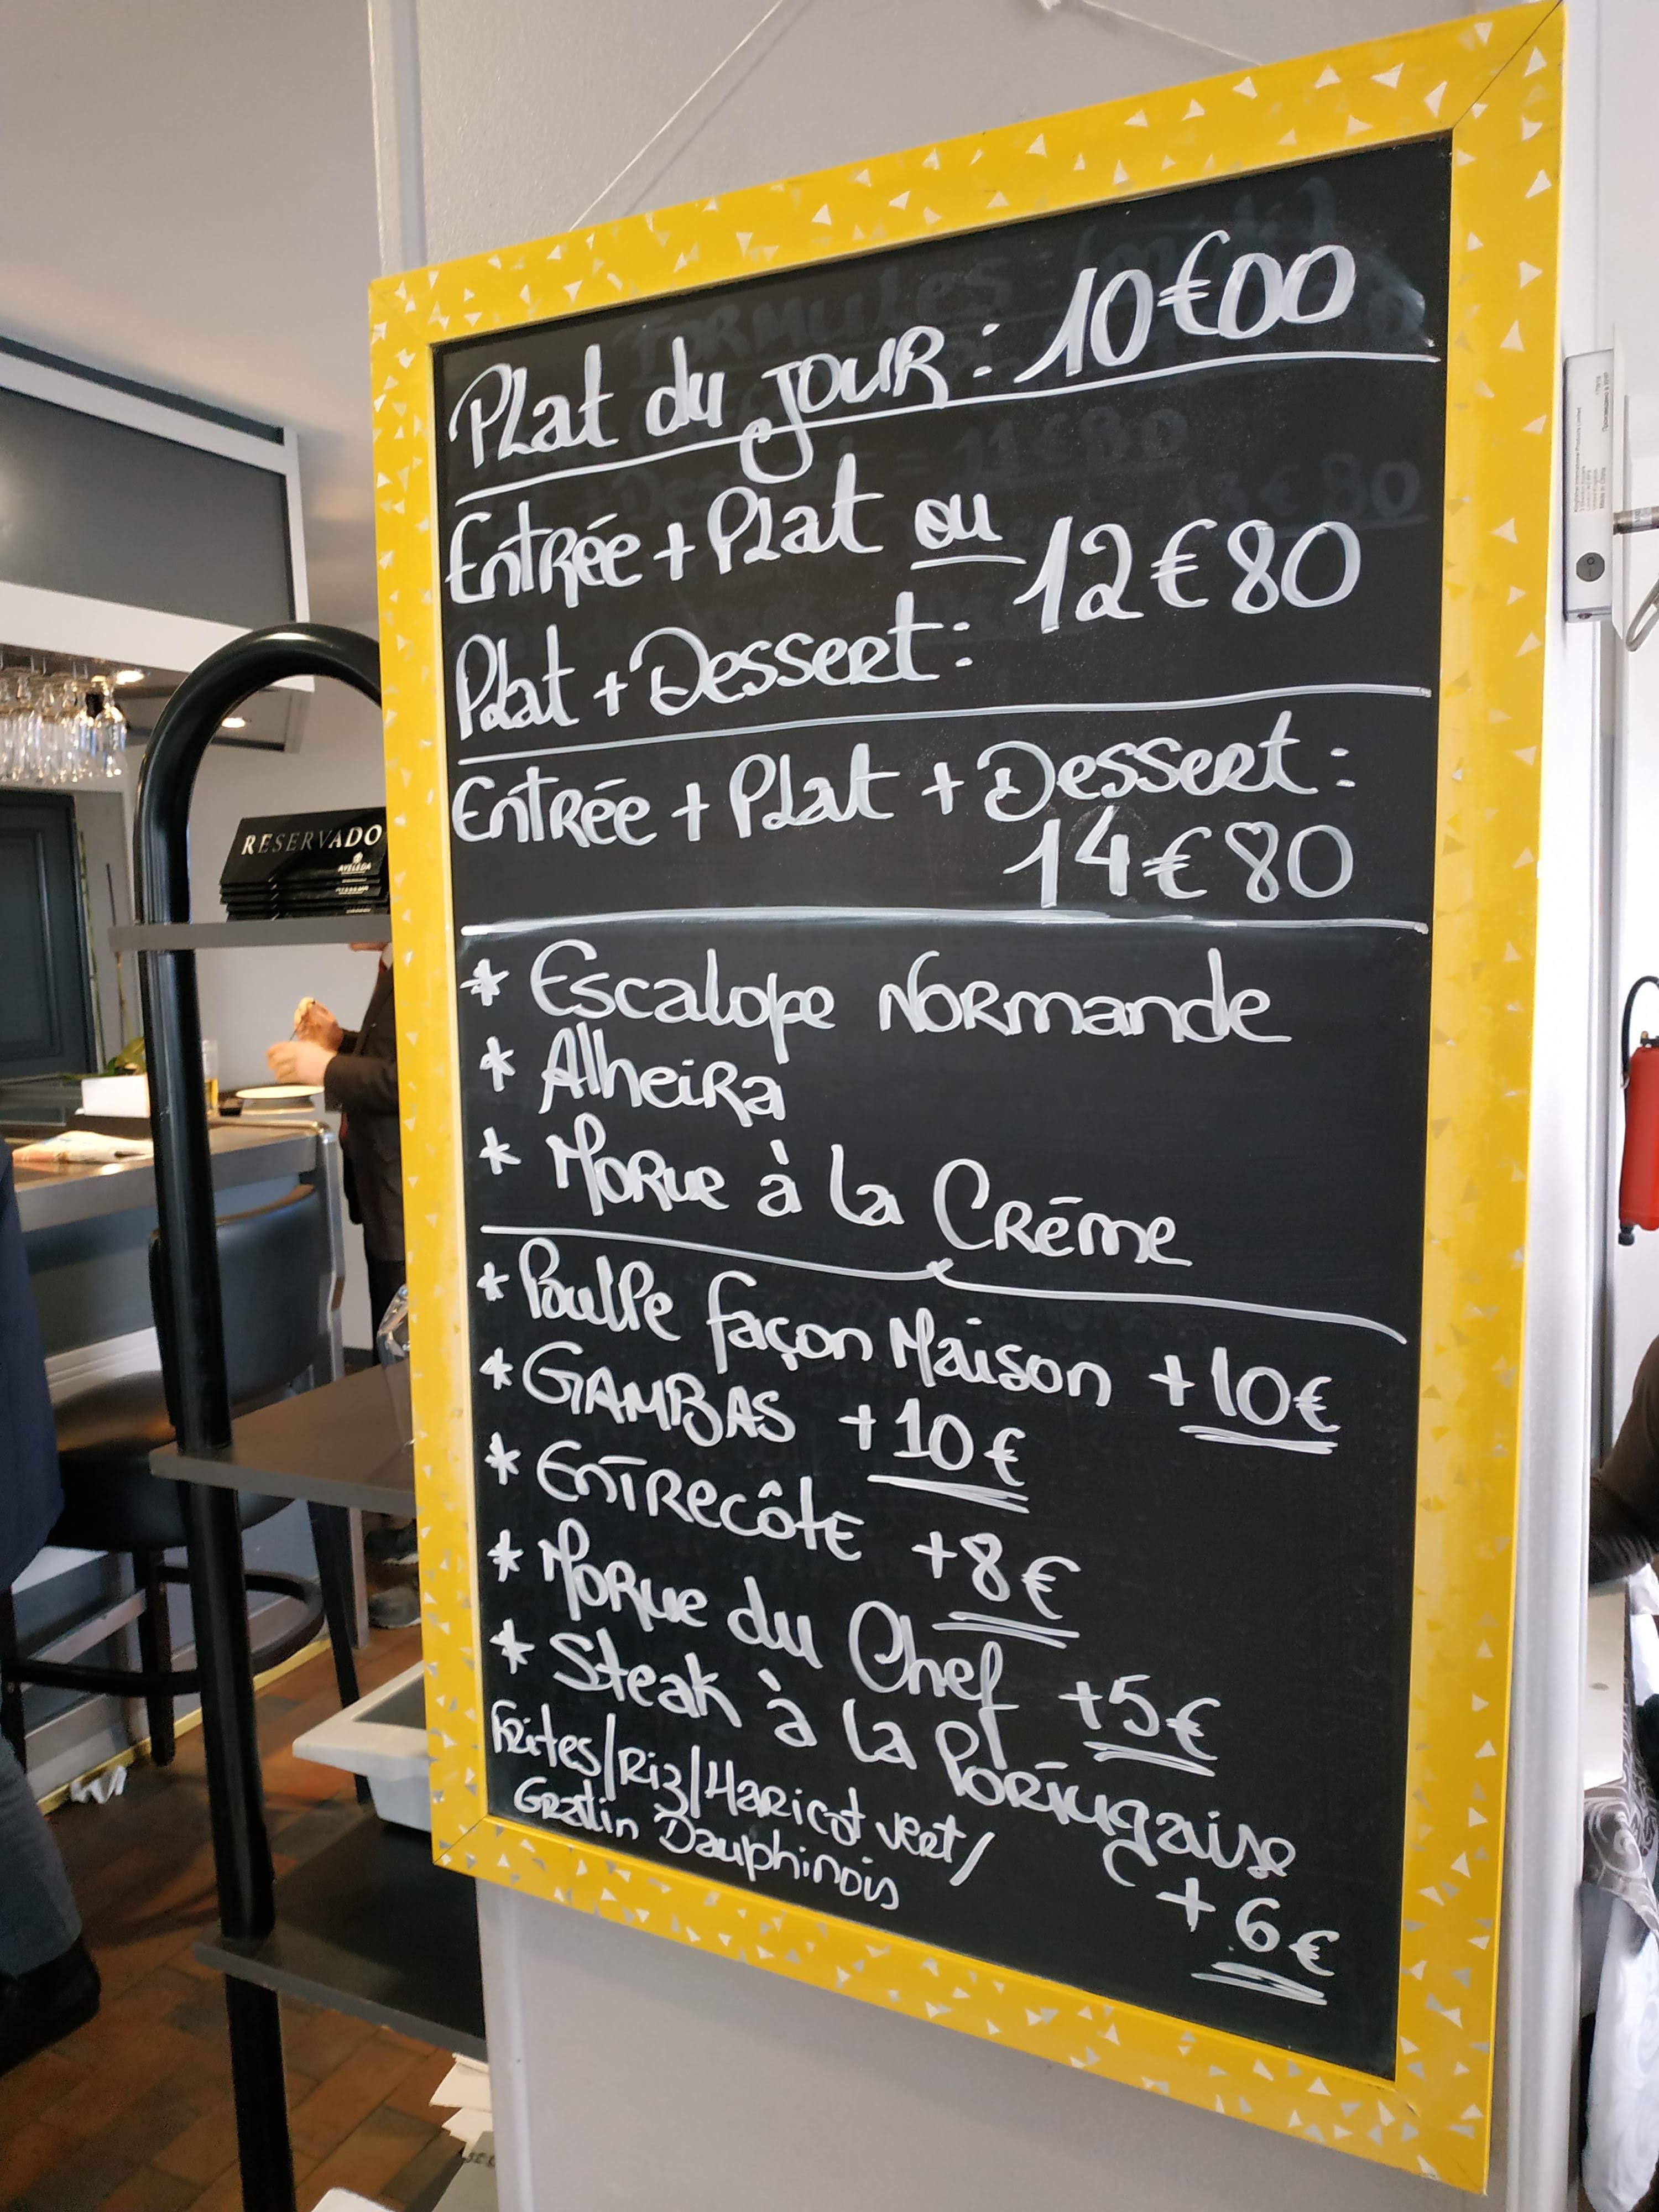 Plat du jour : 10€00
Entrée + Plat ou
12€80
Plat + Dessert :
Entrée + Plat + Dessert :
14€80
* Escalope Normande
* Alheira
* Morue à la Créme
* Poulpe façon Maison +10€
* GAMBAS +10€
* Entrecôte +8€
* Morue du Chef +5€
* Steak à la Portugaise
+6€
Frites/Riz/Haricot vert/
Gratin Dauphinois
RESERVADO